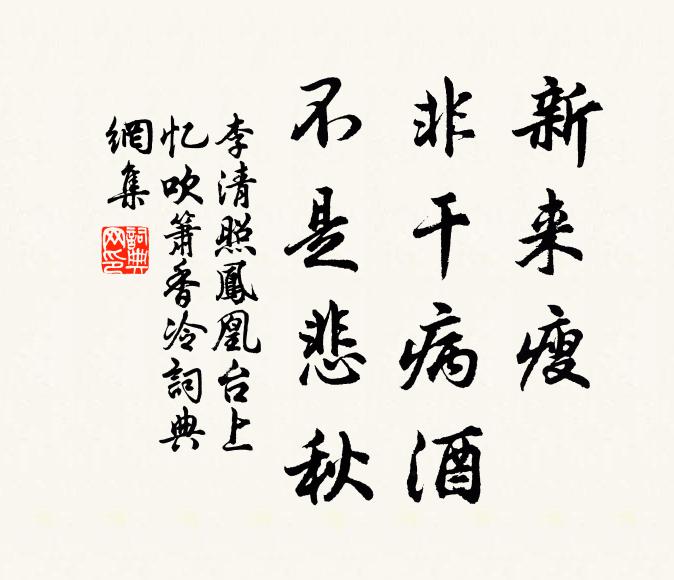 新来瘦
非干病酒
不是悲秋
李清照鳳凰台上
忆吹簫香冷詞典
網集
詞典
网印